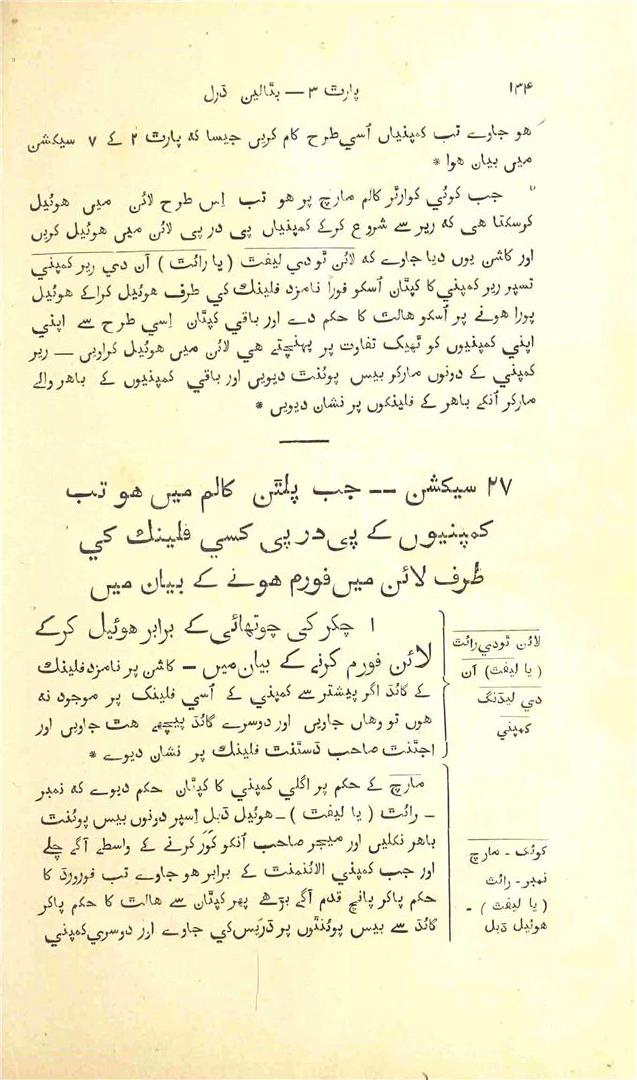 ۱۳۴
پارٹ ۳ — بٹالین ڈرل
ھو جاوے تب کمپنیاں اُسی طرح کام کریں جیسا کہ پارٹ ۲ کے ۷ سیکشن
میں بیان ھوا *
جب کوئی کوارٹر کالم مارچ پر ھو تب اِس طرح لائن میں ھوئیل
کرسکتا ھی کہ ریر سے شروع کرکے کمپنیاں پی در پی لائن میں ھوئیل کریں
اور کاشن یوں دیا جاوے کہ لائن ٹو دی لیفٹ ( یا رائٹ ) آن دی ریر کمپنی
تسپر ریر کمپنی کا کپتان اُسکو فوراً نامزد فلینک کی طرف ھوئیل کراکے ھوئیل
پورا ھونے پر اُسکو ھالٹ کا حکم دے اور باقی کپتان اِسی طرح سے اپنی
اپنی کمپنیوں کو ٹھیک تفاوت پر پہنچتے ھی لائن میں ھوئیل کراویں — ریر
کمپنی کے دونوں مارکر بیس پوئنٹ دیویں اور باقی کمپنیوں کے باھر والے
مارکر اُنکے باھر کے فلینکوں پر نشان دیویں *
۲۷ سیکشن -- جب پلٹن کالم میں ھو تب
کمپنیوں کے پی در پی کسی فلینک کی
طرف لائن میں فورم ھونے کے بیان میں
۱ چکر کی چوتھائی کے برابر ھوئیل کرکے
لائن فورم کرنے کے بیان میں — کاشن پر نامزد فلینک
کے گائڈ اگر پیشتر سے کمپنی کے اُسی فلینک پر موجود نہ
ھوں تو وھاں جاویں اور دوسرے گائڈ پیچھے ھٹ جاویں اور
اجٹنٹ صاحب ڈسٹنٹ فلینک پر نشان دیوے *
لائن ٹو دی رائٹ
( یا لیفٹ ) آن
دی لیڈنگ
کمپنی
مارچ کے حکم پر اگلی کمپنی کا کپتان حکم دیوے کہ نمبر
— رائٹ ( یا لیفٹ ) — ھوئیل ڈبل اِسپر دونوں بیس پوئنٹ
باھر نکلیں اور میجر صاحب اُنکو کَوَر کرنے کے واسطے آگے چلے
اور جب کمپنی الائنمنٹ کے برابر ھو جاوے تب فورورڈ کا
حکم پاکر پانچ قدم آگے بڑھے پھر کپتان سے ھالٹ کا حکم پاکر
گائڈ سے بیس پوئنٹوں پر ڈرِیس کی جاوے اور دوسری کمپنی
کوئک - مارچ
نمبر - رائٹ
( یا لیفٹ ) -
ھوئیل ڈبل